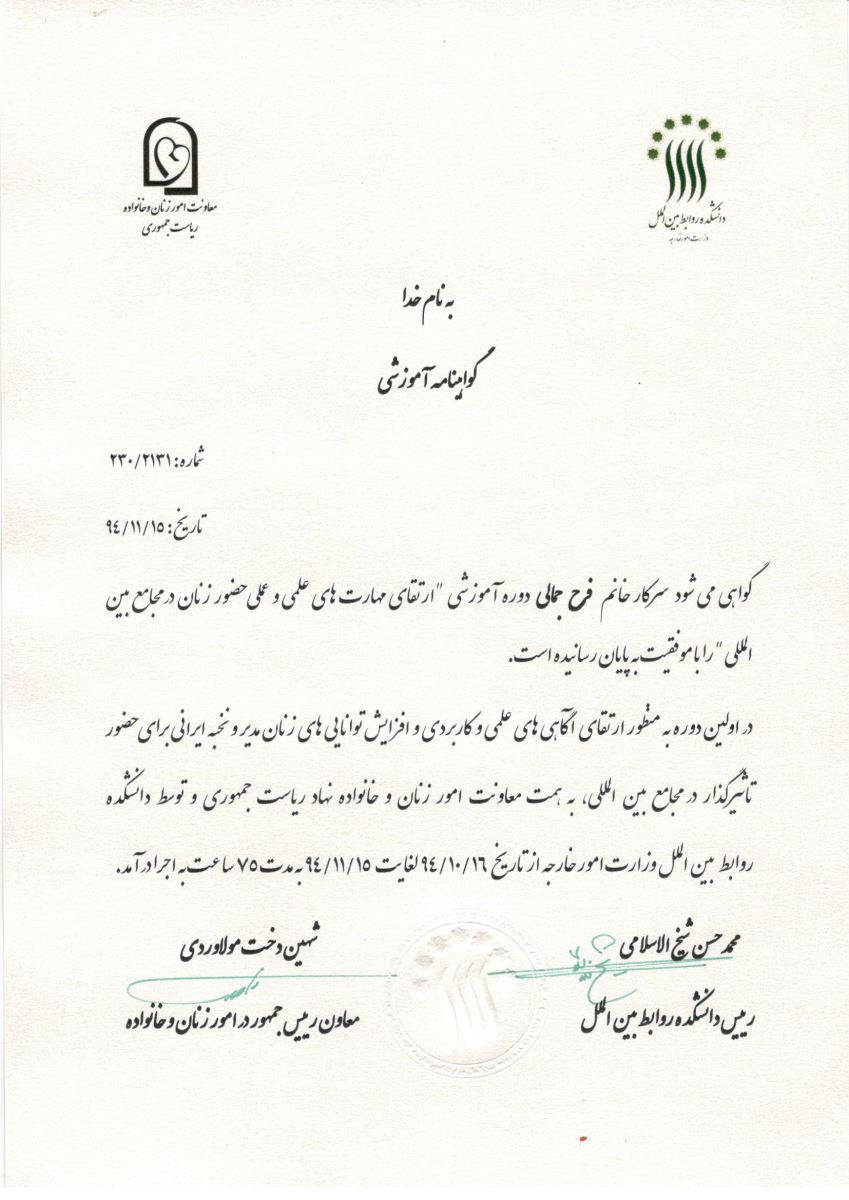 دانشکده روابط بین الملل
وزارت امور خارجه
معاونت امور زنان و خانواده
ریاست جمهوری
به نام خدا
گواهینامه آموزشی
شماره: ۲۳۰/۲۱۳۱
تاریخ: ۹۴/۱۱/۱۵
گواهی می شود سرکار خانم فرح جمالی دوره آموزشی "ارتقای مهارت های علمی و عملی حضور زنان در مجامع بین
المللی" را با موفقیت به پایان رسانیده است.
در اولین دوره به منظور ارتقای آگاهی های علمی و کاربردی و افزایش توانایی های زنان مدیر و نخبه ایرانی برای حضور
تأثیرگذار در مجامع بین المللی، به همت معاونت امور زنان و خانواده نهاد ریاست جمهوری و توسط دانشکده
روابط بین الملل وزارت امور خارجه از تاریخ ۹۴/۱۰/۱۶ لغایت ۹۴/۱۱/۱۵ به مدت ۷۵ ساعت به اجرا درآمد.
محمد حسن شیخ الاسلامی
رییس دانشکده روابط بین الملل
شهین دخت مولاوردی
معاون رییس جمهور در امور زنان و خانواده